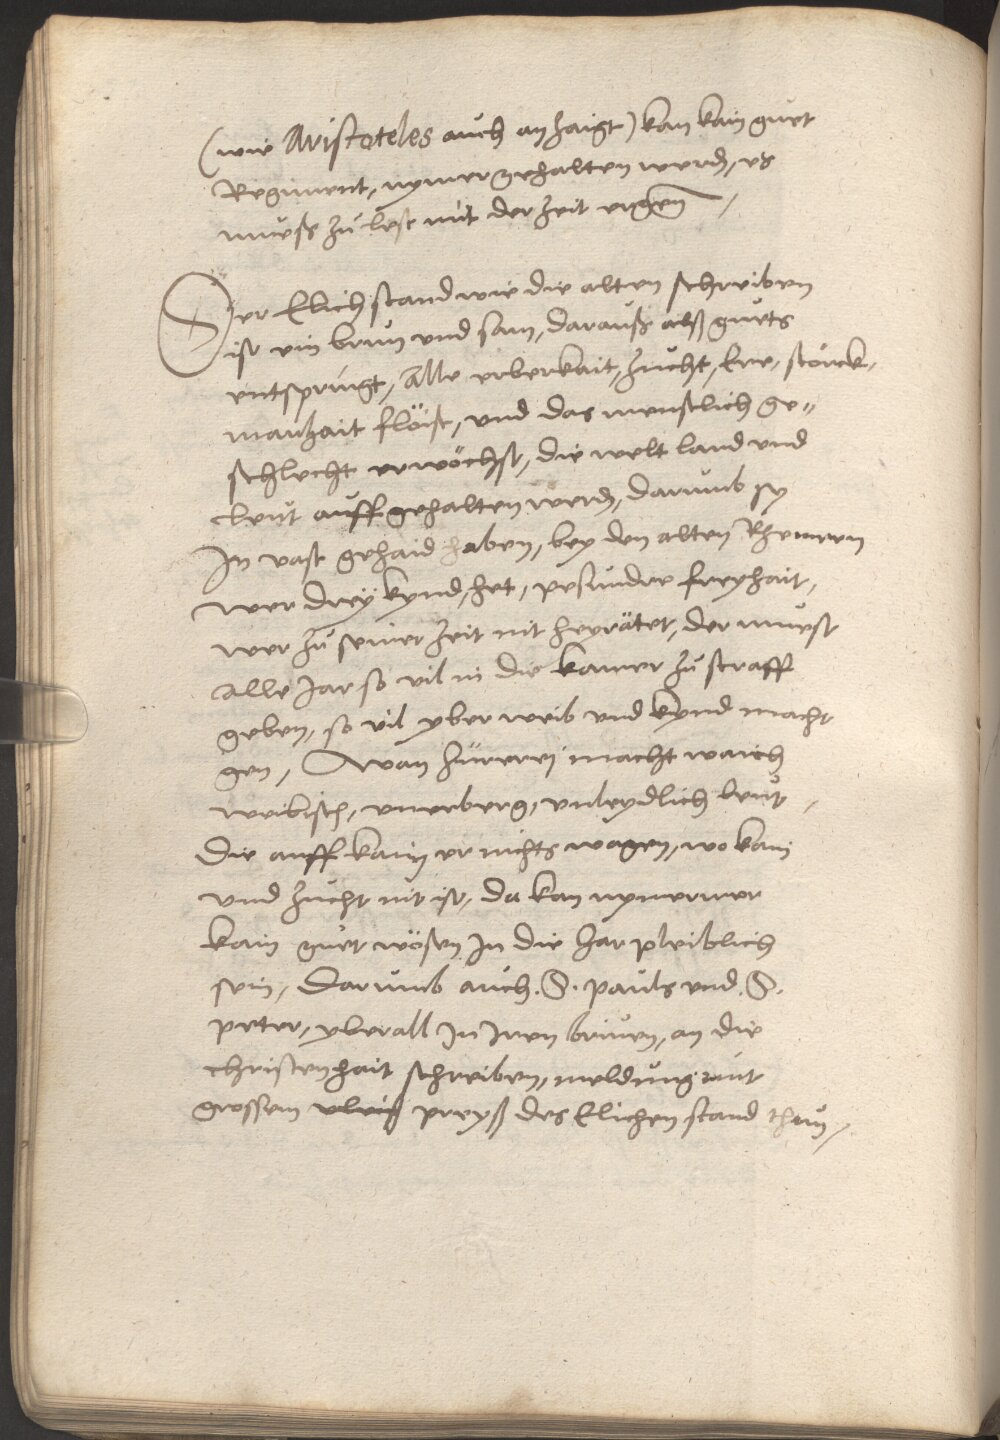 (wie Aristoteles auch anzaigt) kan kain guet
Regiment, nymer gehalten werdn, es
muess zu lest mit der zeit ergen /
Der Elich stand wie die alten schreiben
ist ein brun und sam, darauss alss guets
entspringt, Alle erberkait, zucht, Ere, störck,
manhait flöist, und das menschlich ge=
schlecht erwöchst, die welt land und
leut auffgehalten werdn, darumb sy
In vast gehaid haben, bey den alten Rhemern
wer drey kynd, het, pesundre freyhait,
wer zu seiner zeit nit heyrätet, der muest
alle Jar so vil in die kamer zu straff
geben, so vil yber weib und kynd macht
gen, Wan hürerej macht waich
weibisch, unerberg, unleydlich leut,
die auff kain er nichts wagen, wo kain
und zucht nit ist, da kan nymermer
kain guet wösen In die har pleiblich
sein, Darumb auch .S. pauls und .S.
peter, yberall In Iren briven, an die
christenhait schreiben, meldung mit
grossem vleiß preyß des Elichen stand thun /